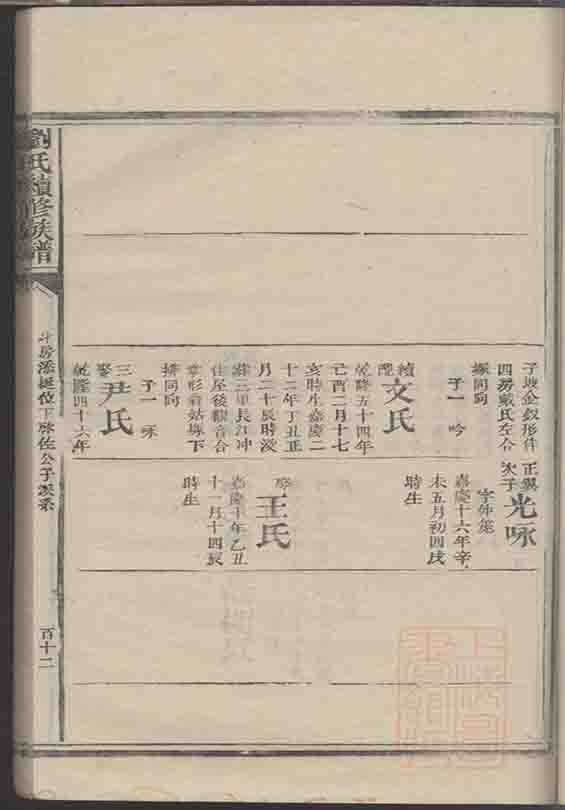 劉氏續修族譜
斗房 公子派系
百十二
子坡金釵形件
四房戴氏左合
塚同向
子一 吟
續配
文氏
乾隆五十四年
己酉二月十七
亥時生嘉慶二
十二年丁丑正
月二十辰時歿
葬三甲長江冲
住屋後觀音合
掌形者姑塚下
排同向
子一 咏
三娶
尹氏
乾隆四十六年
正巽次子
光咏
字仲
嘉慶十六年辛
未五月初四戌
時生
娶
王氏
嘉慶十年乙丑
十一月十四辰
時生